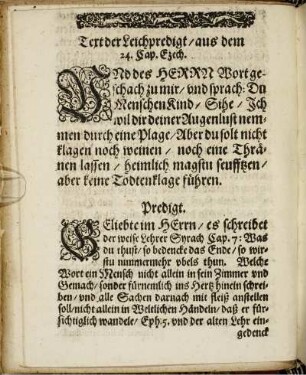 Text der Leichpredigt/ aus dem
24. Cap. Ezech.
UNd des HERRN Wort ge-
schach zu mir/ vnd sprach: Du
MenschenKind/ Sihe/ Ich
wil dir deiner Augenlust nem-
men durch eine Plage/ Aber du solt nicht
klagen noch weinen/ noch eine Thrä-
nen lassen/ heimlich magstu seufftzen/
aber keine Todtenklage führen.
Predigt.
GEliebte im HErrn/ es schreibet
der weise Lehrer Syrach Cap. 7: Was
du thust/ so bedencke das Ende/ so wir-
stu nimmermehr vbels thun. Welche
Wort ein Mensch nicht allein in sein Zimmer vnd
Gemach/ sonder fürnemlich ins Hertz hinein schrei-
ben/ vnd alle Sachen darnach mit fleiß anstellen
soll/ nicht allein in Weltlichen Händeln/ daß er für-
sichtiglich wandele/ Eph. 5. vnd der alten Lehr ein-
gedenck